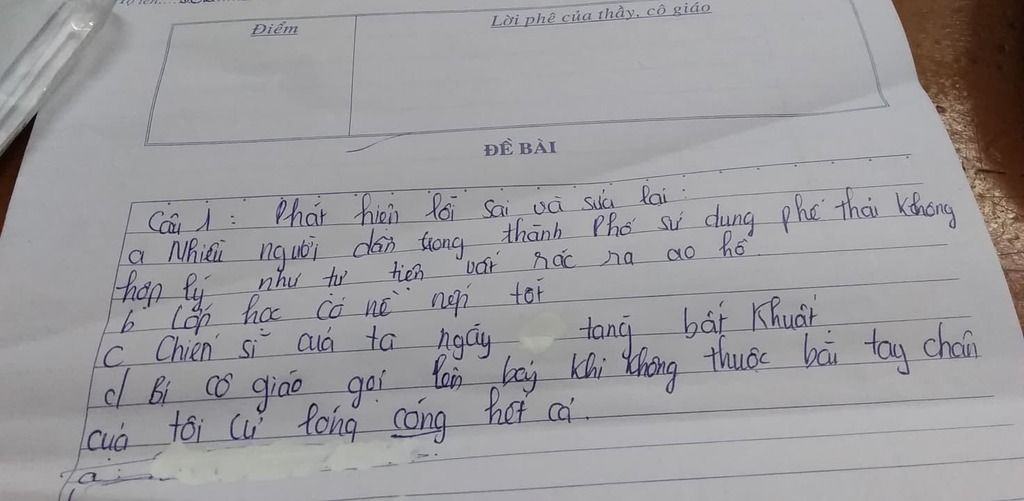 Điểm
Lời phê của thầy, cô giáo
ĐỀ BÀI
Câu 1 : Phát hiện lỗi sai và sửa lại :
a Nhiều người dân trong thành Phố sử dụng phế thải không
hợp lý như tự tiện vứt rác ra ao hồ.
b Lớp học có nề nếp tốt
c Chiến sĩ của ta ngãy tang bất Khuất
d Bị cô giáo gọi lên bảy khi không thuộc bài tay chân
của tôi cứ lóng cóng hết cả.
a